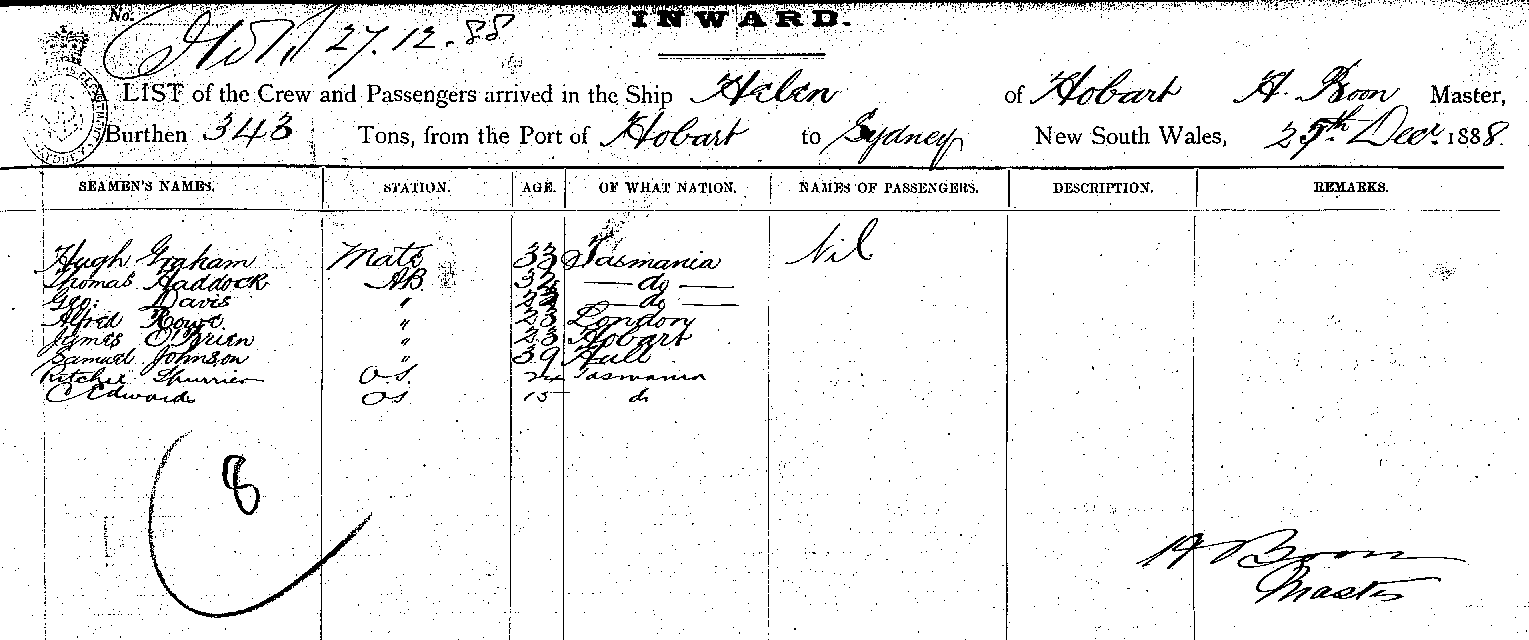 No.
INWARD.
27.12.88
LIST of the Crew and Passengers arrived in the Ship Helen of Hobart H. Boon Master,
Burthen 343 Tons, from the Port of Hobart to Sydney New South Wales, 25th Decr. 1888.
SEAMEN'S NAMES. STATION. AGE. OF WHAT NATION. NAMES OF PASSENGERS. DESCRIPTION. REMARKS.
Hugh Graham Mate 33 Tasmania Nil
Thomas Haddock AB 32 — do —
Geo: Davis " — do —
Alfred Rowe " 23 London
James O'Brien " 23 Hobart
Samuel Johnson " 39 Hull
Ritchie Spurrier O.S. Tasmania
C Edwards OS 15 do
8
H Boon
Master